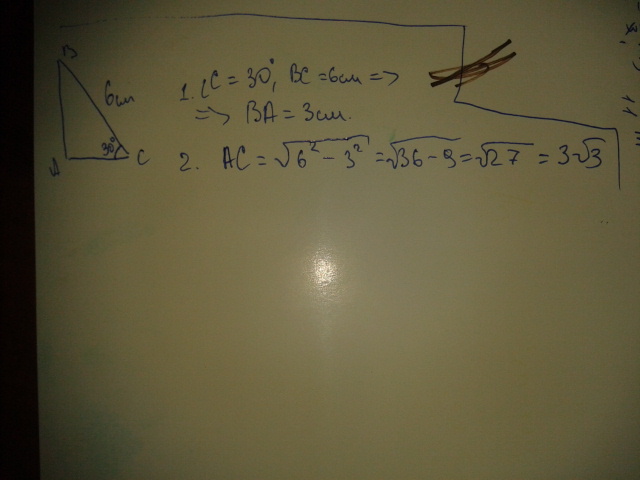 B
6см
30°
A
C
1. ∠C = 30°, BC = 6см =>
=> BA = 3см.
2. AC = √6² - 3² = √36 - 9 = √27 = 3√3